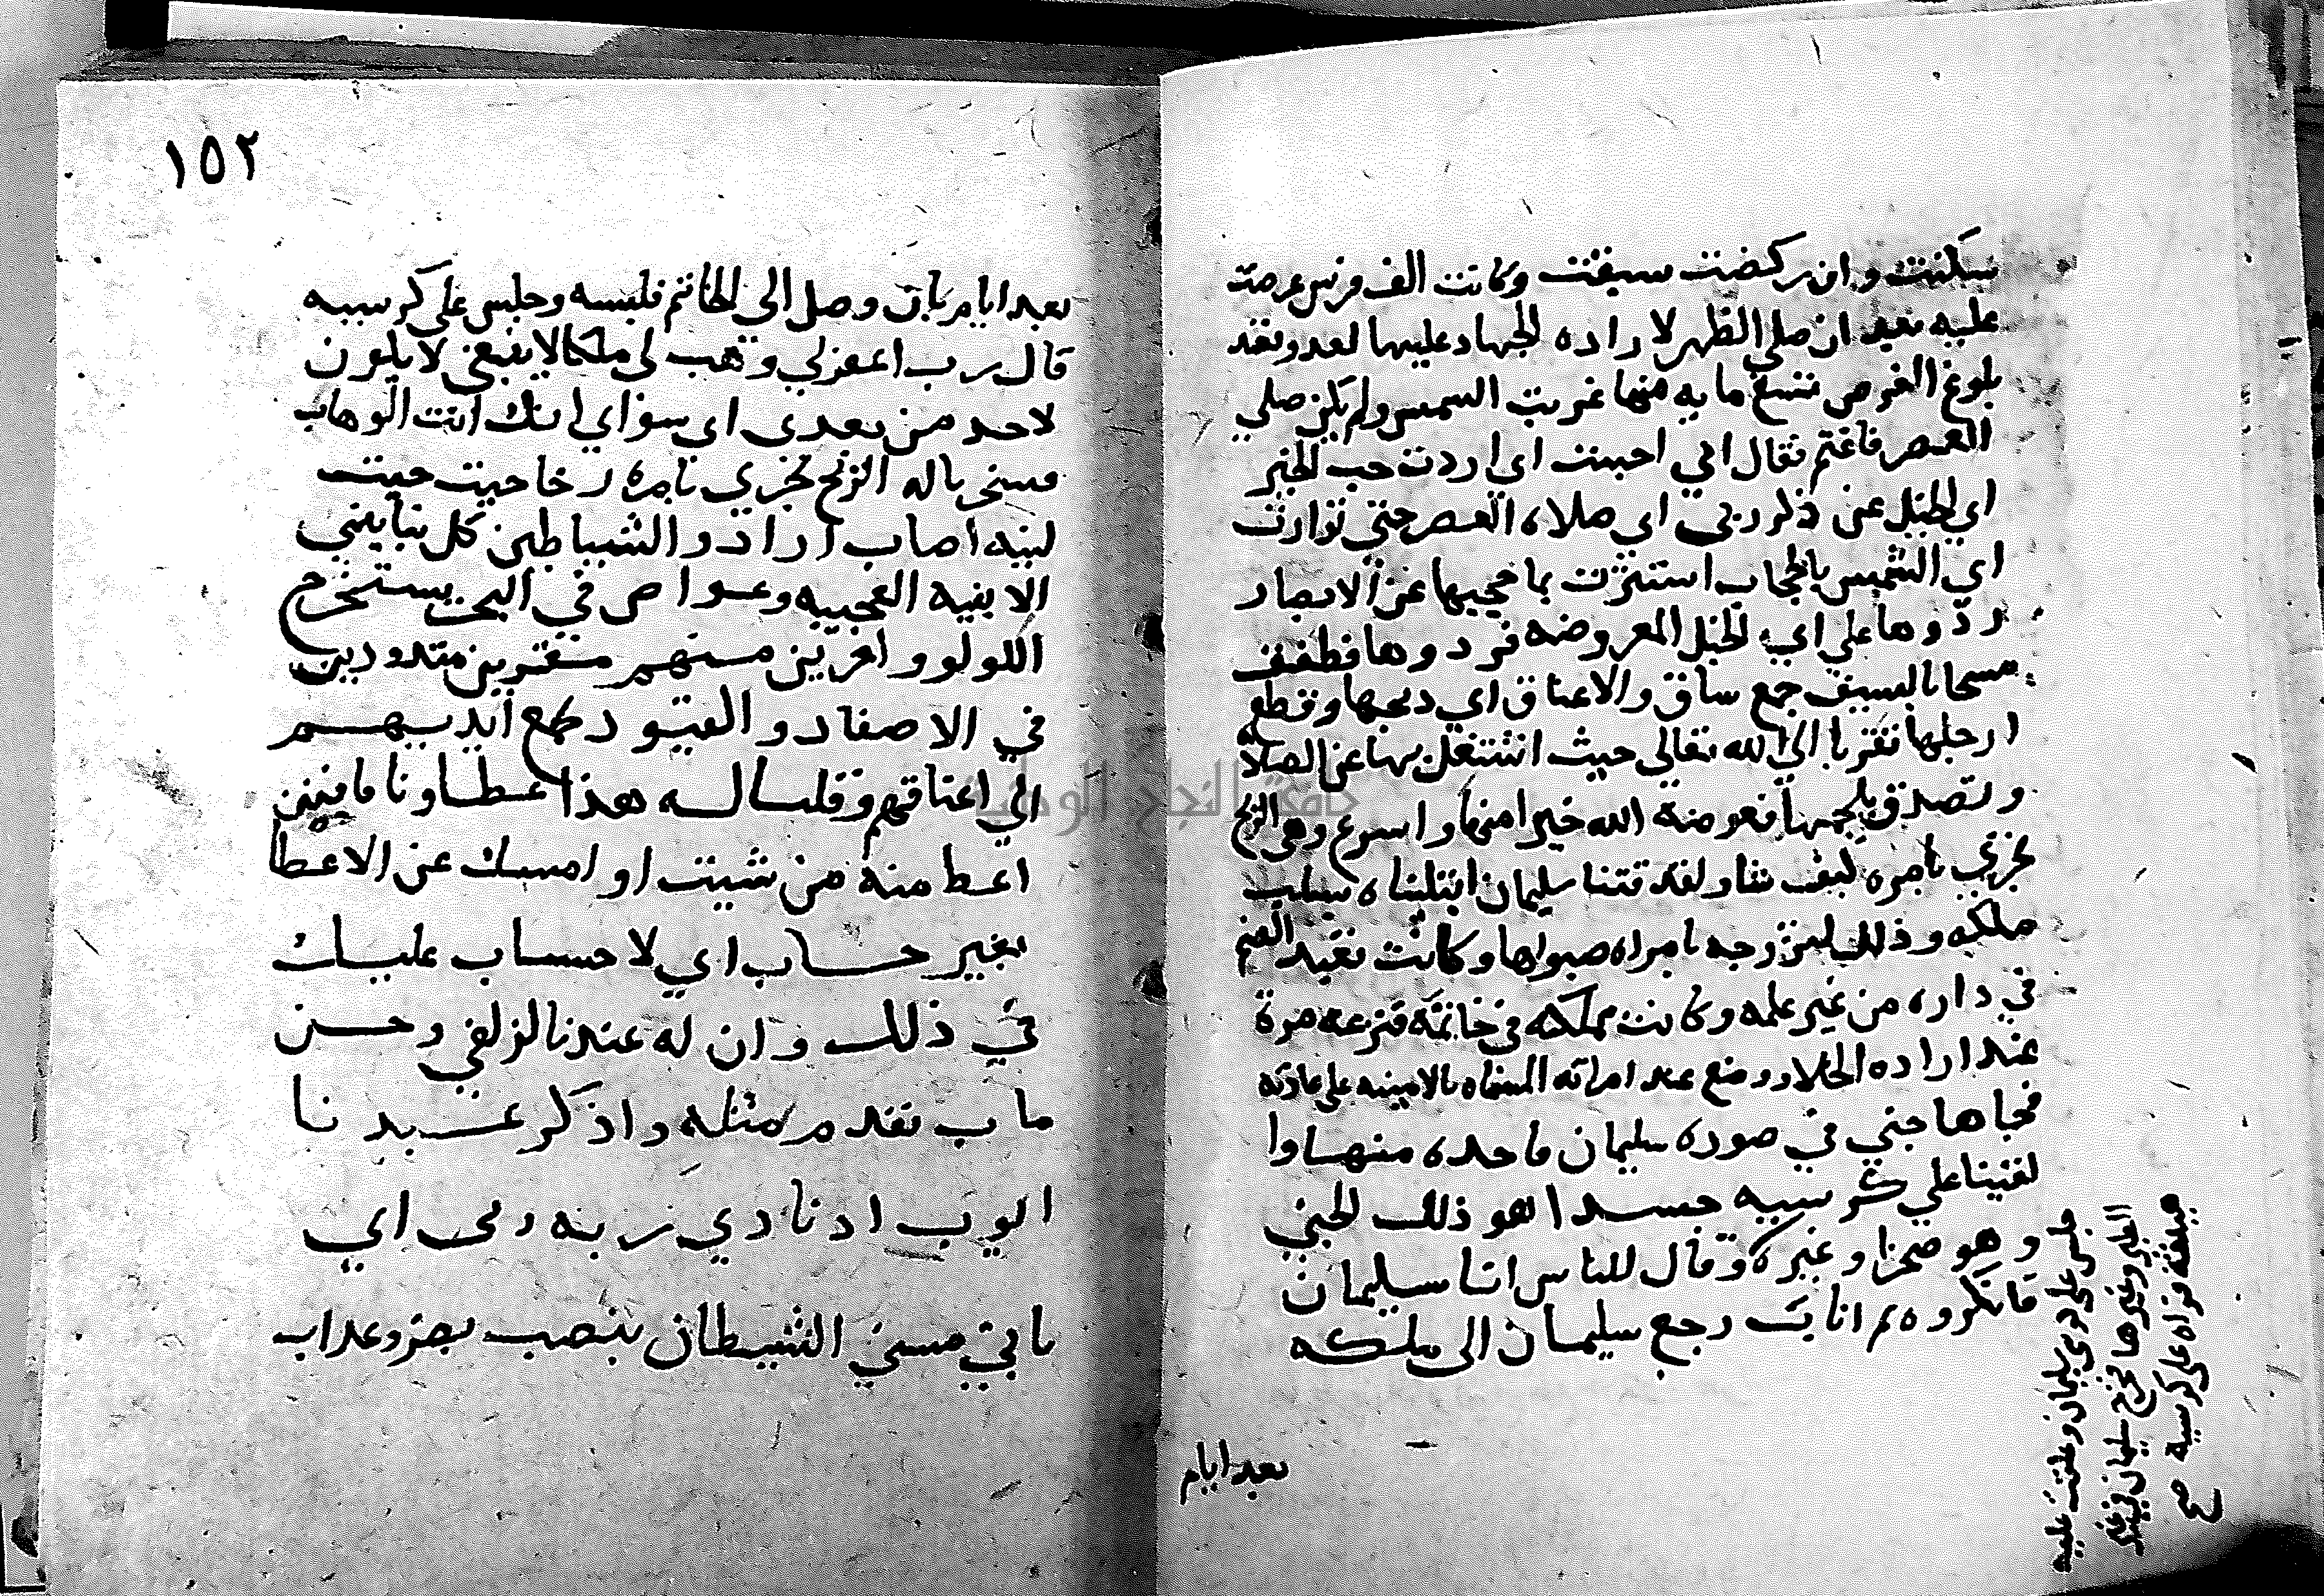 سكنت وان ركضت سبقت وكانت الف فرس عرضت
عليه بعد ان صلى الظهر لاراده الجهاد عليها لعدو فعند
بلوغ العرض تسع مايه منها غربت الشمس ولم يكن صلي
العصر فاغتم فقال اني احببت اي اردت حب الخير
اي الخيل عن ذكر ربي اي صلاه العصر حتي توارت
اي الشمس بالحجاب استترت بما يحجبها عن الابصار
ردوها علي اي الخيل المعروضه فردوها فطفق
مسحا بالسيف جمع ساق والاعناق اي ذبحها وقطع
ارجلها تقربا الي الله تعالي حيث اشتغل بها عن الصلاة
وتصدق بلحمها فعوضه الله خيرا منها واسرع وهي الريح
تجري بامره كيف شا ولقد فتنا سليمان ابتليناه بسلب
ملكه وذلك لتزوجه بامراه هويها وكانت تعبد الصنم
في داره من غير علمه وكانت مملكه في خاتمه فنزعه مرة
عند اراده الخلا ووضع عند امراته المسماه بالامينه على عادته
فجاها جني في صوره سليمان فاخده منها وا
لقينا علي كرسيه جسدا هو ذلك الجني
وهو صخرا وغيره وقال للناس انا سليمان
فانكروه ثم اناب رجع سليمان الى ملكه
جلس على كرسي سليمان وعكفت عليه
الطير وغيرها فخرج سليمان في غير
هيئته فراه على كرسيه صح
بعد ايام
١٥٢
بعد ايام بان وصل الى الخاتم فلبسه وجلس علي كرسيه
قال رب اغفر لي وهب لي ملكا لا ينبغي لا يكون
لاحد من بعدي اي سواي انك انت الوهاب
فسخرنا له الريح تجري بامره رخا حيث حيث
لينه اصاب اراد والشياطين كل بنا يبني
الابنيه العجيبه وغواص في البحر يستخرج
اللولو واخرين منهم مقرنين مشدودين
في الاصفاد والقيود بجمع ايديهم
الي اعناقهم وقلنا له هذا عطاونا فامنن
اعط منه من شيت او امسك عن الاعطا
بغير حساب اي لا حساب عليك
في ذلك وان له عندنا لزلفي وحسن
ماب تقدم مثله واذكر عبدنا
ايوب اذ نادي ربه اني اي
باني مسني الشيطان بنصب بضر وعداب